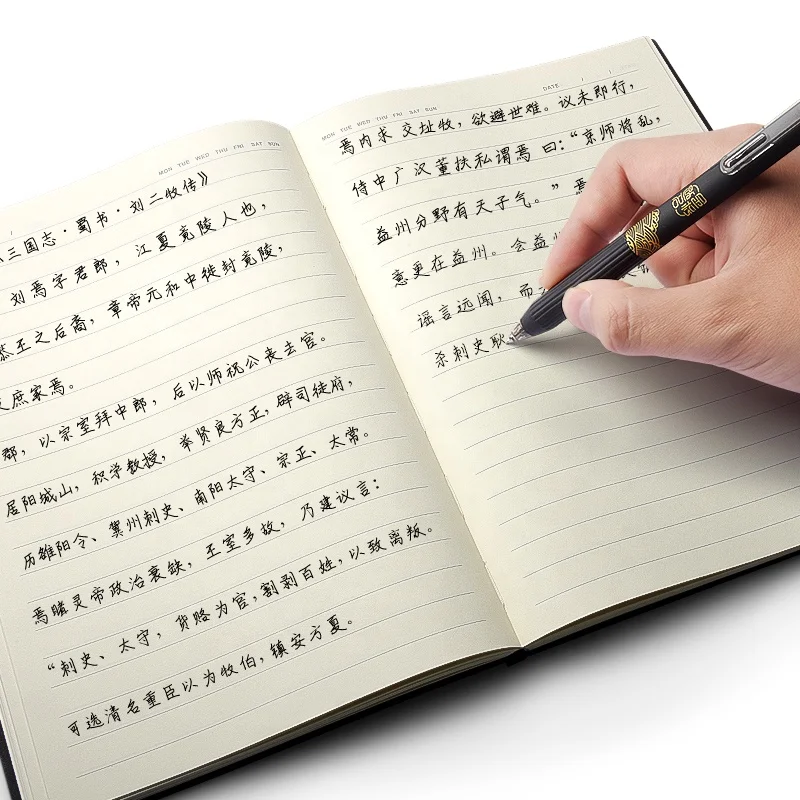 MON TUE WED THU FRI SAT SUN
三国志·蜀书·刘二牧传》
刘焉字君郎，江夏竟陵人也，
恭王之后裔，章帝元和中徙封竟陵，
庶家焉。
郡，以宗室拜中郎，后以师祝公丧去官。
居阳城山，积学教授，举贤良方正，辟司徒府，
历雒阳令、冀州刺史、南阳太守、宗正、太常。
焉睹灵帝政治衰缺，王室多故，乃建议言：
“刺史、太守，货赂为官，割剥百姓，以致离叛。
可选清名重臣以为牧伯，镇安方夏。
MON TUE WED THU FRI SAT SUN
DATE / /
焉内求交址牧，欲避世难。议未即行，
侍中广汉董扶私谓焉曰：“京师将乱，
益州分野有天子气。”焉
意更在益州。会益州
谣言远闻，而
杀刺史耿